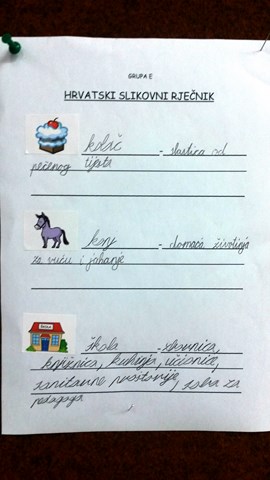 GRUPA E
HRVATSKI SLIKOVNI RJEČNIK
kolač - slastica od
pečenog tijesta
konj - domaća životinja
za vuču i jahanje
škola - zbornica,
knjižnica, kuhinja, učionice,
sanitarne prostorije, soba za
pedagoga